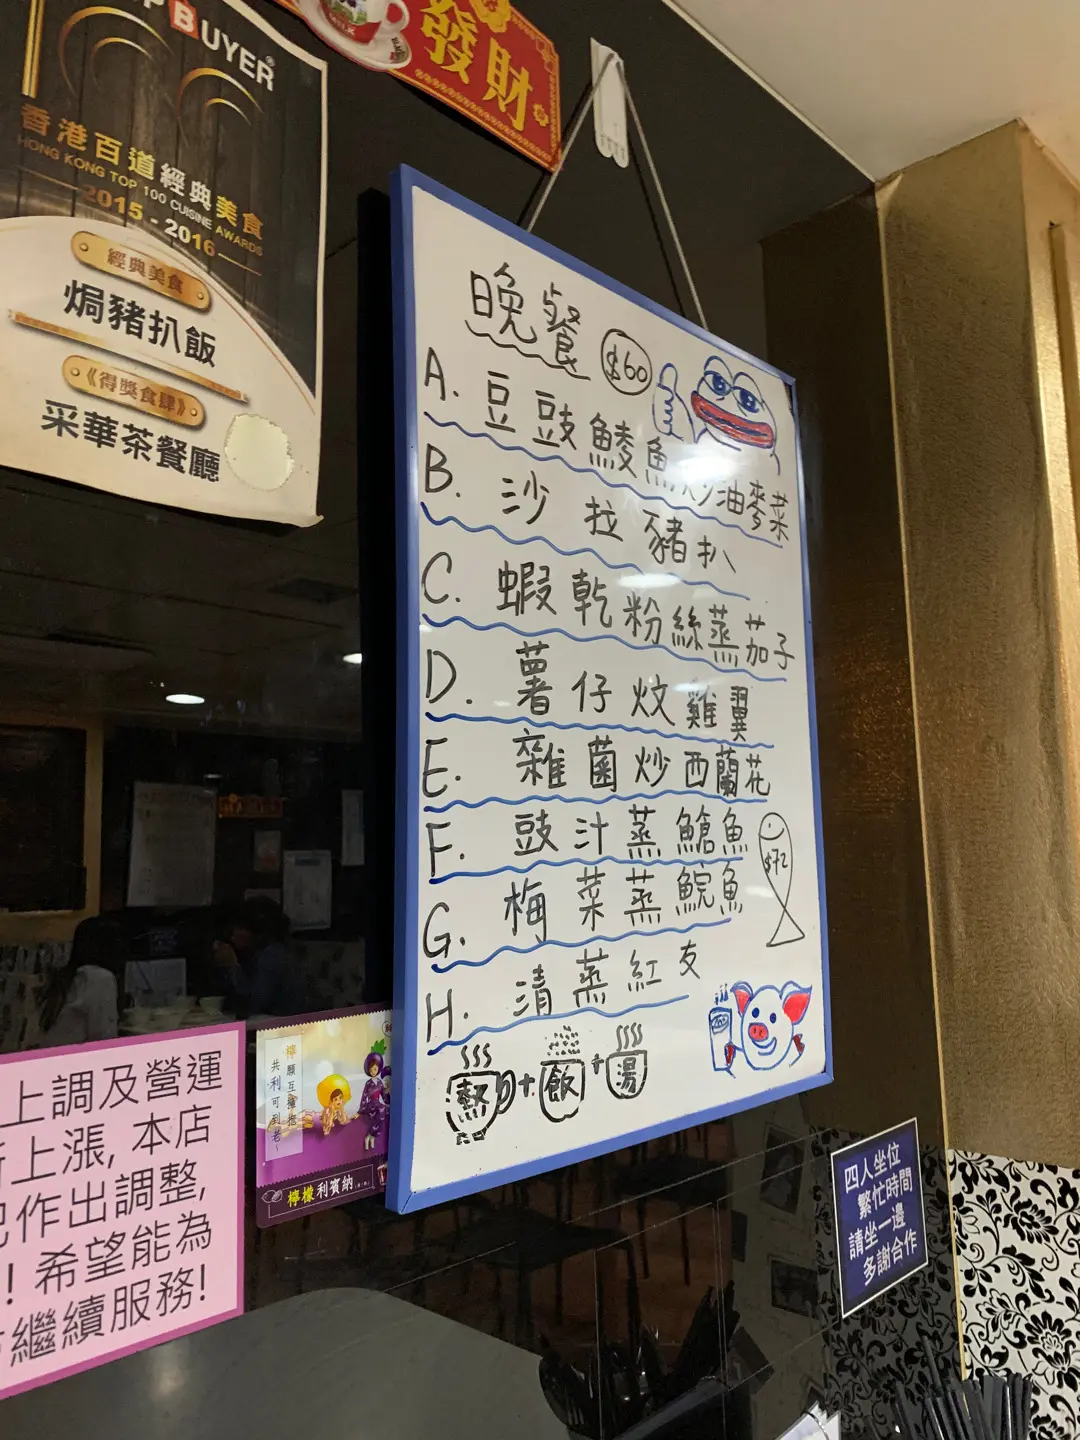 P BUYER
香港百道經典美食
HONG KONG TOP 100 CUISINE AWARDS
2015 - 2016
經典美食
焗豬扒飯
《得獎食肆》
采華茶餐廳
MILK
發財
晚餐 $60
A. 豆豉鯪魚炒油麥菜
B. 沙拉豬扒
C. 蝦乾粉絲蒸茄子
D. 薯仔炆雞翼
E. 雜菌炒西蘭花
F. 豉汁蒸鯧魚
G. 梅菜蒸鯇魚
$72
H. 清蒸紅友
熱+飯+湯
上調及營運
上漲, 本店
作出調整,
! 希望能為
繼續服務!
檸願互擁抱
共利可到老~
檸檬利賓納
四人坐位
繁忙時間
請坐一邊
多謝合作